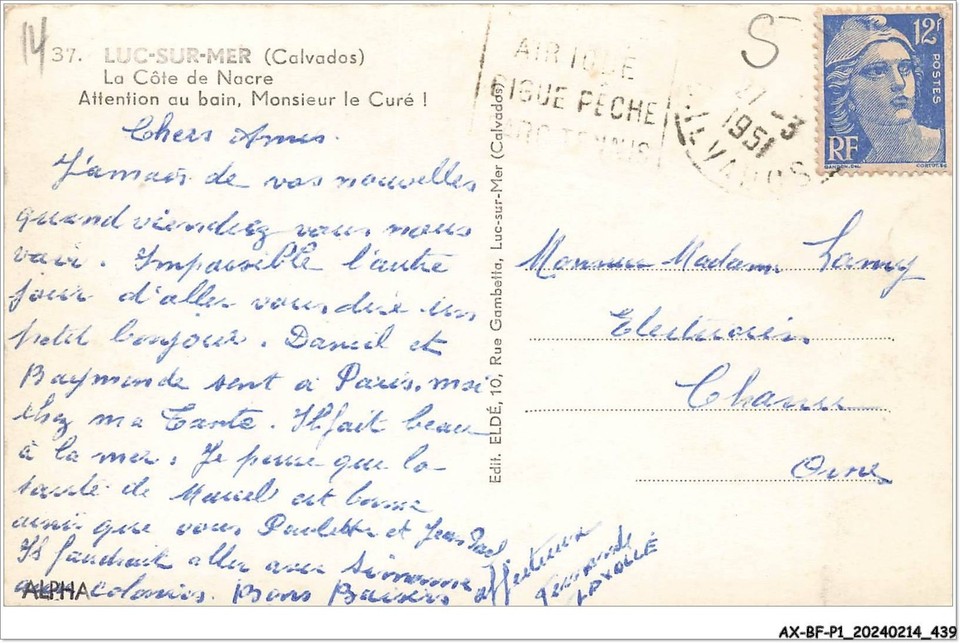 14
37. LUC-SUR-MER (Calvados)
La Côte de Nacre
Attention au bain, Monsieur le Curé !
Chers Amis.
Jamais de vos nouvelles
quand viendrez vous nous
voir. Impossible l'autre
jour d'aller vous dire un
petit bonjour. Daniel et
Raymonde sont à Paris, moi
chez ma Tante. Il fait beau
à la mer. Je pense que la
santé de Marcel est bonne
ainsi que vous Paulette et Jean
Il faudrait aller avec Simonne
colonies. Bons Baisers affectueux
Fernande
ALPHA
Edit. ELDÉ, 10, Rue Gambetta, Luc-sur-Mer (Calvados)
AIR IODE
DIGUE PÊCHE
PARC TENNIS
-3
1951
CALVADOS
S
12F
POSTES
RF
GANDON DEL
CORTOT SC
Monsieur Madame Lamy
Electricien
Chanu
Orne
AX-BF-P1_20240214_439